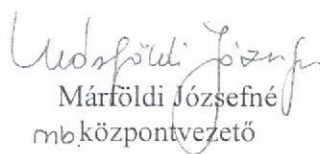 Márföldi József
Márföldi Józsefné
mb központvezető